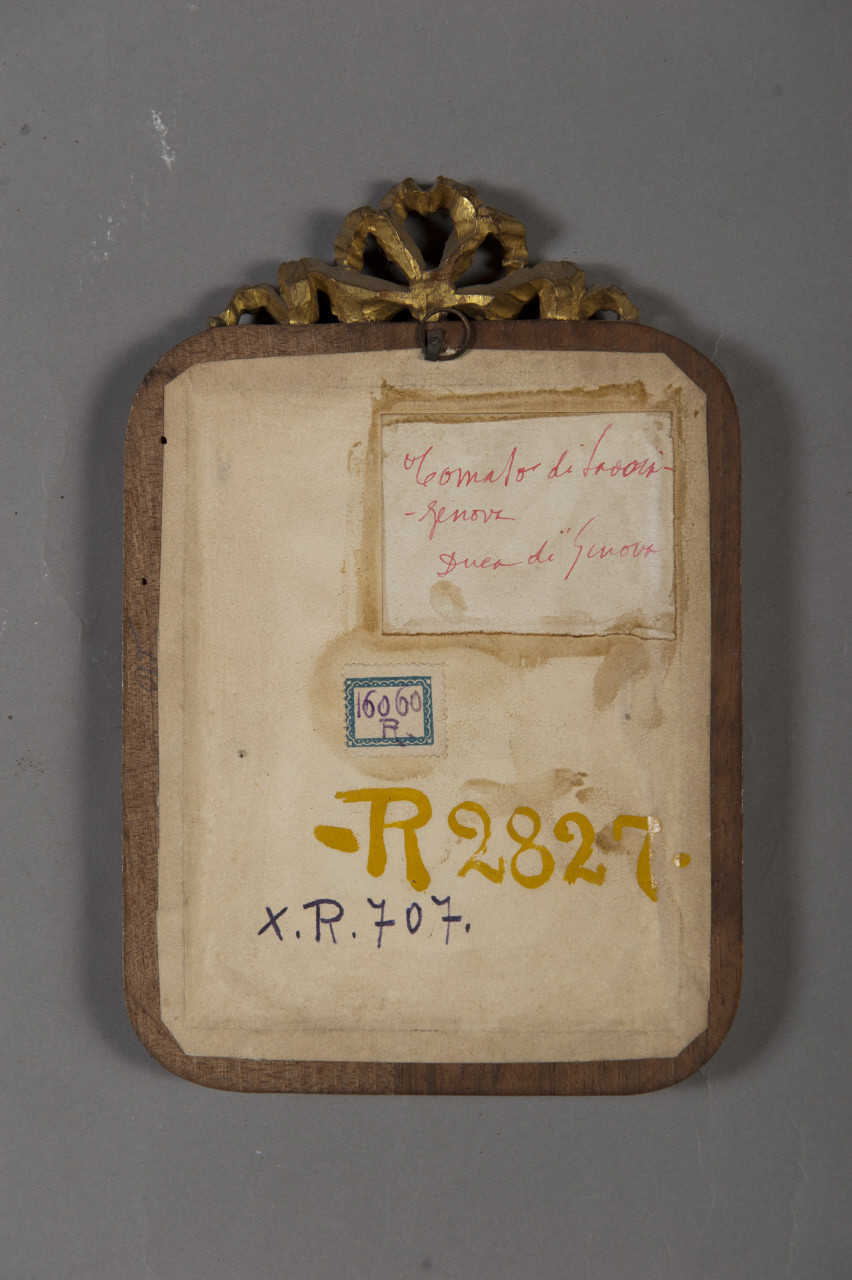 Tomaso di Savoia-
-Genova
Duca di Genova
16060
R
-R 2827.
X.R.707.